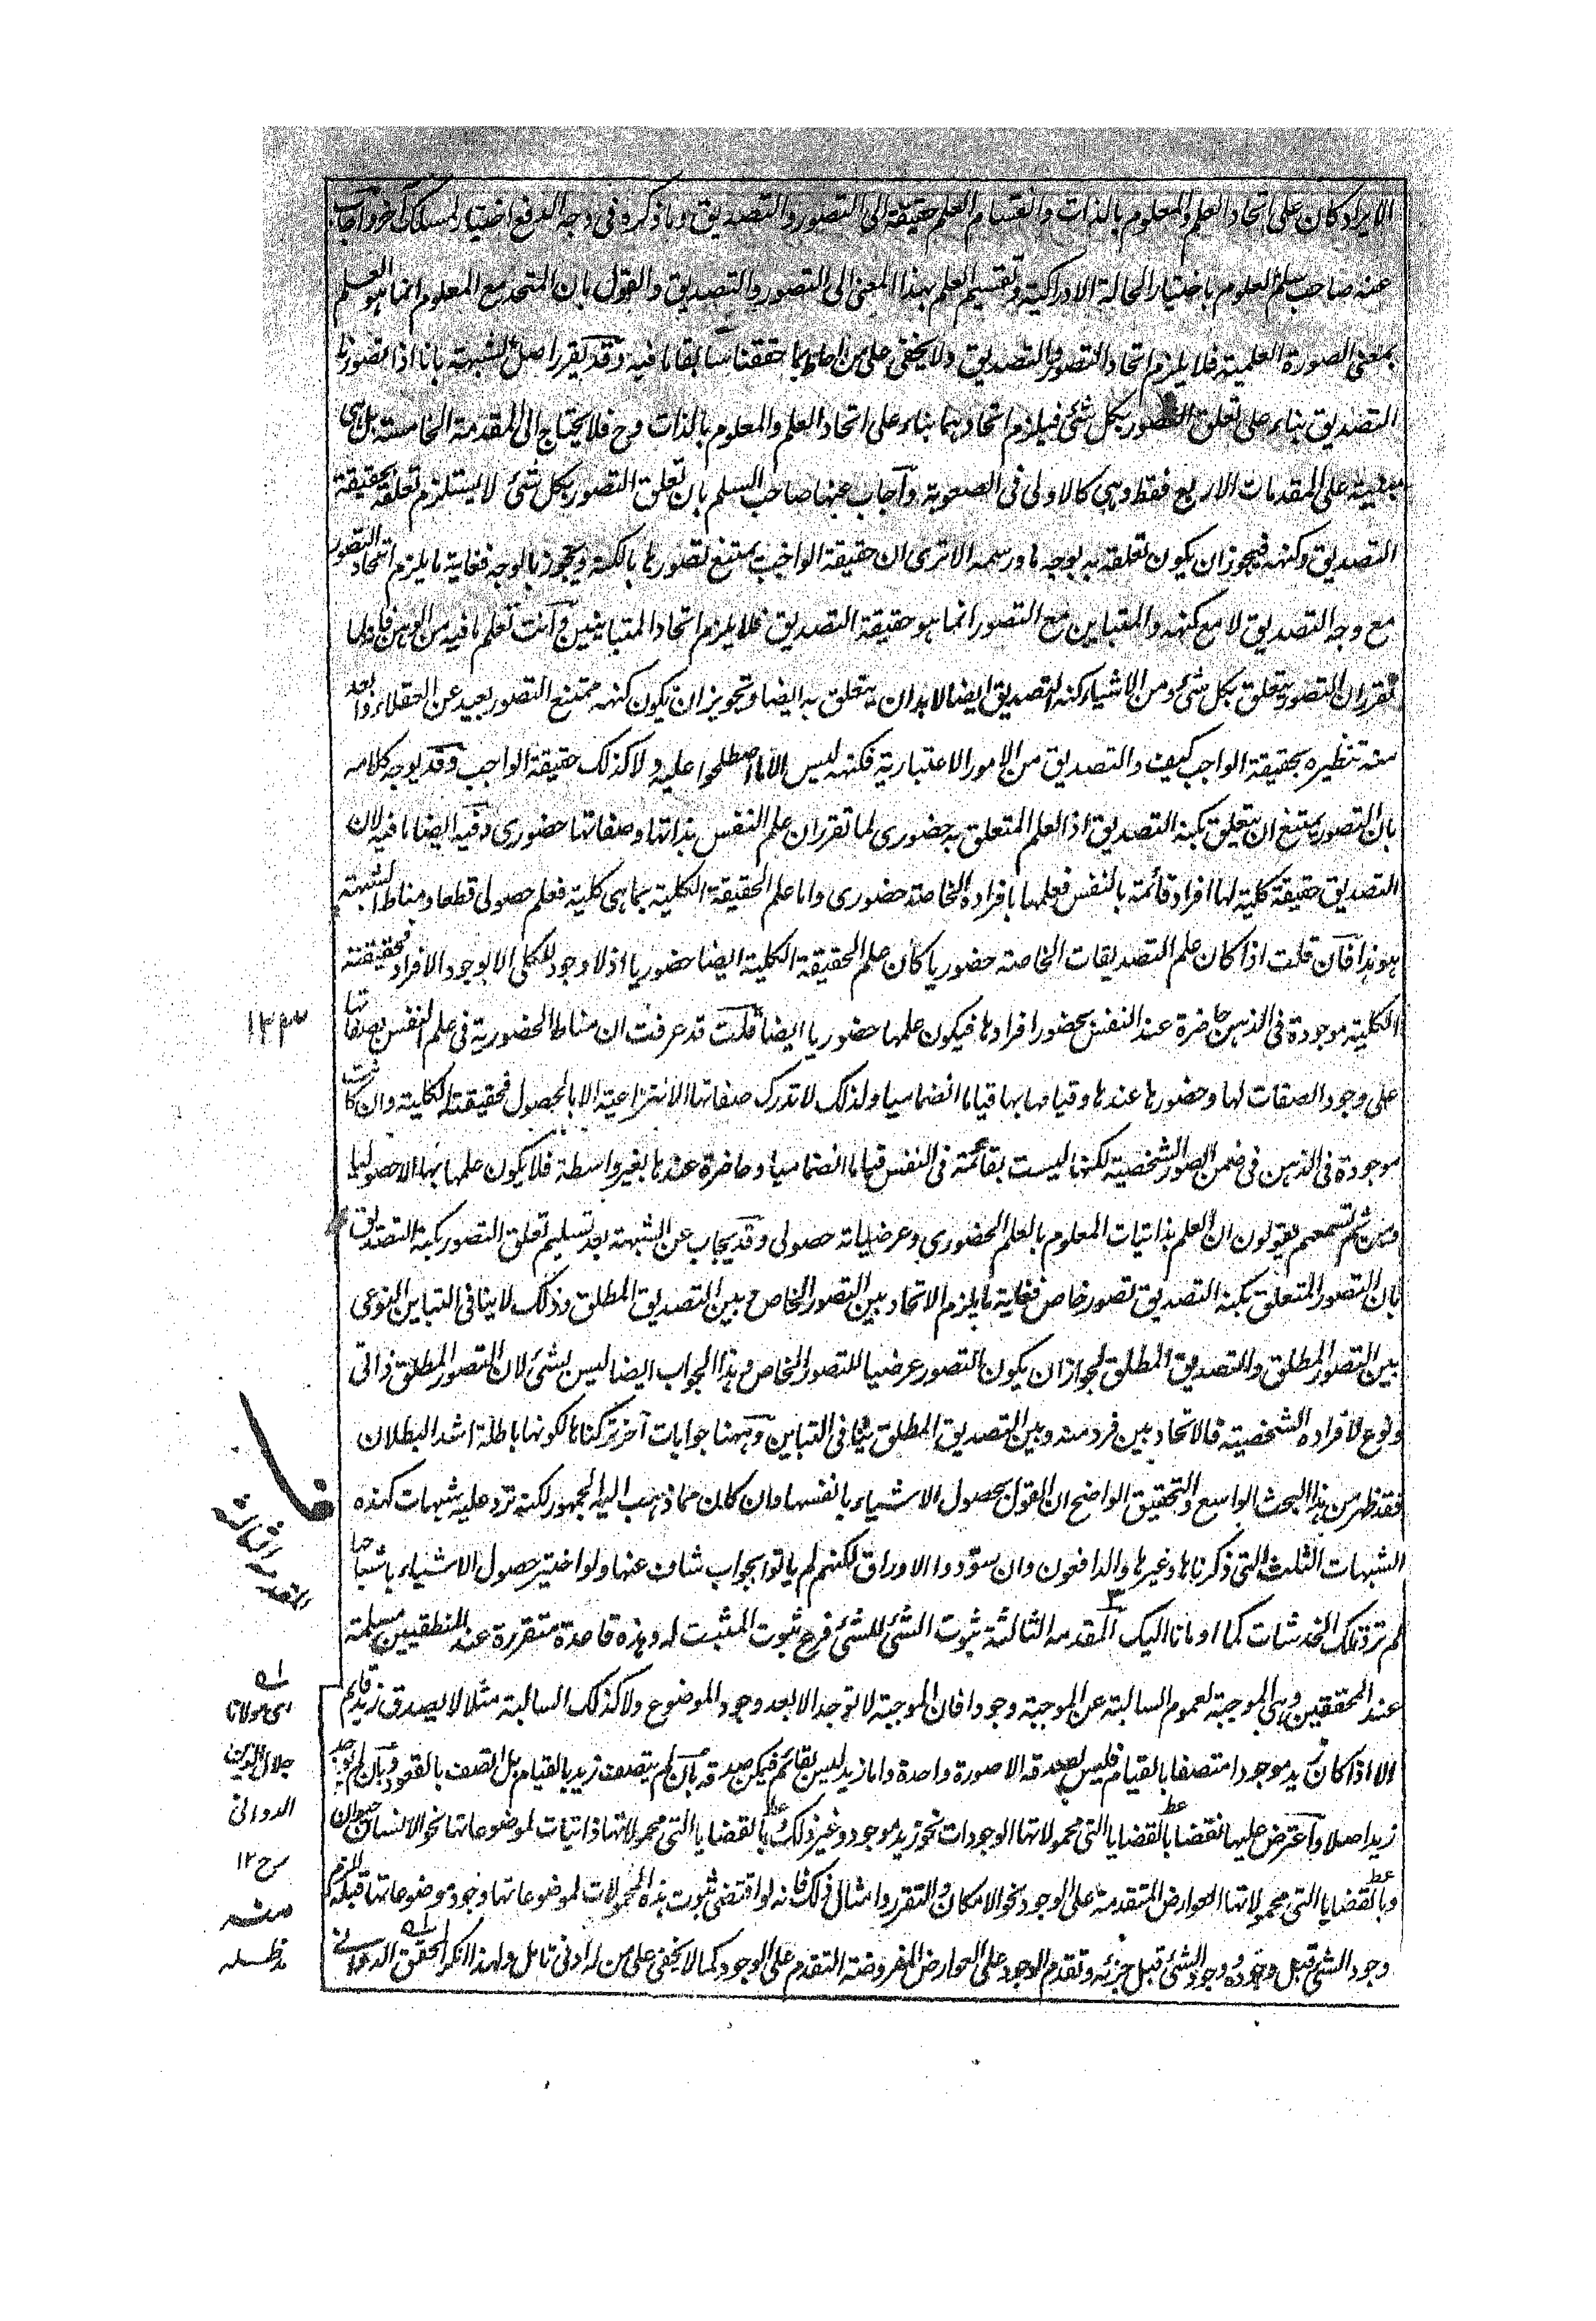 الايراد كان على اتحاد العلم والمعلوم بالذات وانقسام العلم حقيقة الى التصور والتصديق وما ذكره فى وجه الدفع اختيار لمسلك آخر واجاب
عنه صاحب سلم العلوم باختيار الحالة الادراكية وتقسيم العلم بهذا المعنى الى التصور والتصديق والقول بان المتحد مع المعلوم انما هو العلم
بمعنى الصورة العلمية فلا يلزم اتحاد التصور والتصديق ولا يخفى على من احاط بما حققنا سابقا ما فيه وقد يقرر اصل الشبهة بانا اذا تصورنا
التصديق بناء على تعلق التصور بكل شئ فيلزم اتحادهما بناء على اتحاد العلم والمعلوم بالذات وح فلا يحتاج الى المقدمة الخامسة بل هى
مبنية على المقدمات الاربع فقط وهى كالاولى فى الصعوبة وآجاب عنها صاحب السلم بان تعلق التصور بكل شئ لا يستلزم تعلقه بحقيقة
التصديق وكنهه فيجوز ان يكون تعلقه به بوجه ما ورسمه الا ترى ان حقيقة الواجب يمتنع تصورها بالكنه ويجوز بالوجه فغاية ما يلزم اتحاد التصور
مع وجه التصديق لا مع كنهه والمتباين مع التصور انما هو حقيقة التصديق فلا يلزم اتحاد المتباينين وآنت تعلم ما فيه من الوهن فانه لما
تقرر ان التصور يتعلق بكل شئ ومن الاشياء كنه التصديق ايضا لا بد ان يتعلق به ايضا وتجويز ان يكون كنهه ممتنع التصور بعيد عن العقلاء وابعد
منه تنظيره بحقيقة الواجب كيف والتصديق من الامور الاعتبارية فكنهه ليس الا ما اصطلحوا عليه ولا كذلك حقيقة الواجب وقد يوجه كلامه
بان التصور يمتنع ان يتعلق بكنه التصديق اذ العلم المتعلق به حضورى لما تقرر ان علم النفس بذاتها وصفاتها حضورى وفيه ايضا ما فيه لان
التصديق حقيقة كلية لها افراد قائمة بالنفس فعلمها بافراده الخاصة حضورى واما علم الحقيقة الكلية بما هى كلية فعلم حصولى قطعا ومناط الشبهة
هو هذا فآن قلت اذا كان علم التصديقات الخاصة حضوريا كان علم الحقيقة الكلية ايضا حضوريا اذ لا وجود للكلى الا بوجود الافراد فحقيقته
الكلية موجودة فى الذهن حاضرة عند النفس بحضور افرادها فيكون علمها حضوريا ايضا قلت قد عرفت ان مناط الحضورية فى علم النفس بصفاتها
على وجود الصفات لها وحضورها عندها وقيامها بها قياما انضماميا ولذلك لا تدرك صفاتها الانتزاعية الا بالحصول فحقيقته الكلية وان كانت
موجودة فى الذهن فى ضمن الصور الشخصية لكنها ليست بقائمة فى النفس قياما انضماميا وحاضرة عندها بغير واسطة فلا يكون علمها بها الا حصوليا
ومن ثم تسمعهم يقولون ان العلم بذاتيات المعلوم بالعلم الحضورى وعرضياته حصولى وقد يجاب عن الشبهة بعد تسليم تعلق التصور بكنه التصديق
بان التصور المتعلق بكنه التصديق تصور خاص فغاية ما يلزم الاتحاد بين التصور الخاص وبين التصديق المطلق وذلك لا ينافى التباين النوعى
بين التصور المطلق والتصديق المطلق لجواز ان يكون التصور عرضيا للتصور الخاص وهذا الجواب ايضا ليس بشئ لان التصور المطلق ذاتى
ونوع لافراده الشخصية فالاتحاد بين فرد منه وبين التصديق المطلق ينافى التباين وههنا جوابات آخر تركناها لكونها باطلة اشد البطلان
فقد ظهر من هذا البحث الواسع والتحقيق الواضح ان القول بحصول الاشياء بانفسها وان كان مما ذهب اليه الجمهور لكنه ترد عليه شبهات كهذه
الشبهات الثلث التى ذكرناها وغيرها والدافعون وان سودوا الاوراق لكنهم لم ياتوا بجواب شاف عنها ولو اختير حصول الاشياء باشباحها
لم ترد تلك الخدشات كما اومانا اليك المقدمة الثالثة ثبوت الشئ للشئ فرع ثبوت المثبت له وهذه قاعدة متقررة عند المنطقيين مسلمة
عند المحققين وهى الموجبة لعموم السالبة عن الموجبة وجودا فان الموجبة لا توجد الا بعد وجود الموضوع ولا كذلك السالبة مثلا لا يصدق زيد قائم
الا اذا كان زيد موجودا متصفا بالقيام فليس لصدقه الا صورة واحدة واما زيد ليس بقائم فيمكن صدقه بان لم يتصف زيد بالقيام بل اتصف بالقعود وبان لم يوجد
زيد اصلا وآعترض عليها نقضا بالقضايا التى محمولاتها الوجودات نحو زيد موجود وغير ذلك وبالقضايا التى محمولاتها ذاتيات لموضوعاتها نحو الانسان حيوان
وبالقضايا التى محمولاتها العوارض المتقدمة على الوجود نحو الامكان والتقرر وامثال ذلك فانه لو اقتضى ثبوت هذه المحمولات لموضوعاتها وجود موضوعاتها قبله لزم
وجود الشئ قبل وجوده ووجود الشئ قبل جزئه وتقدم الوجود على العوارض المفروضة التقدم على الوجود كما لا يخفى على من له ادنى تامل ولهذا انكر المحقق الدوانى
١٢ منه
المقدمة الثالثة
اى مولانا
جلال الدين
الدوانى
١٢
منه
مد ظله